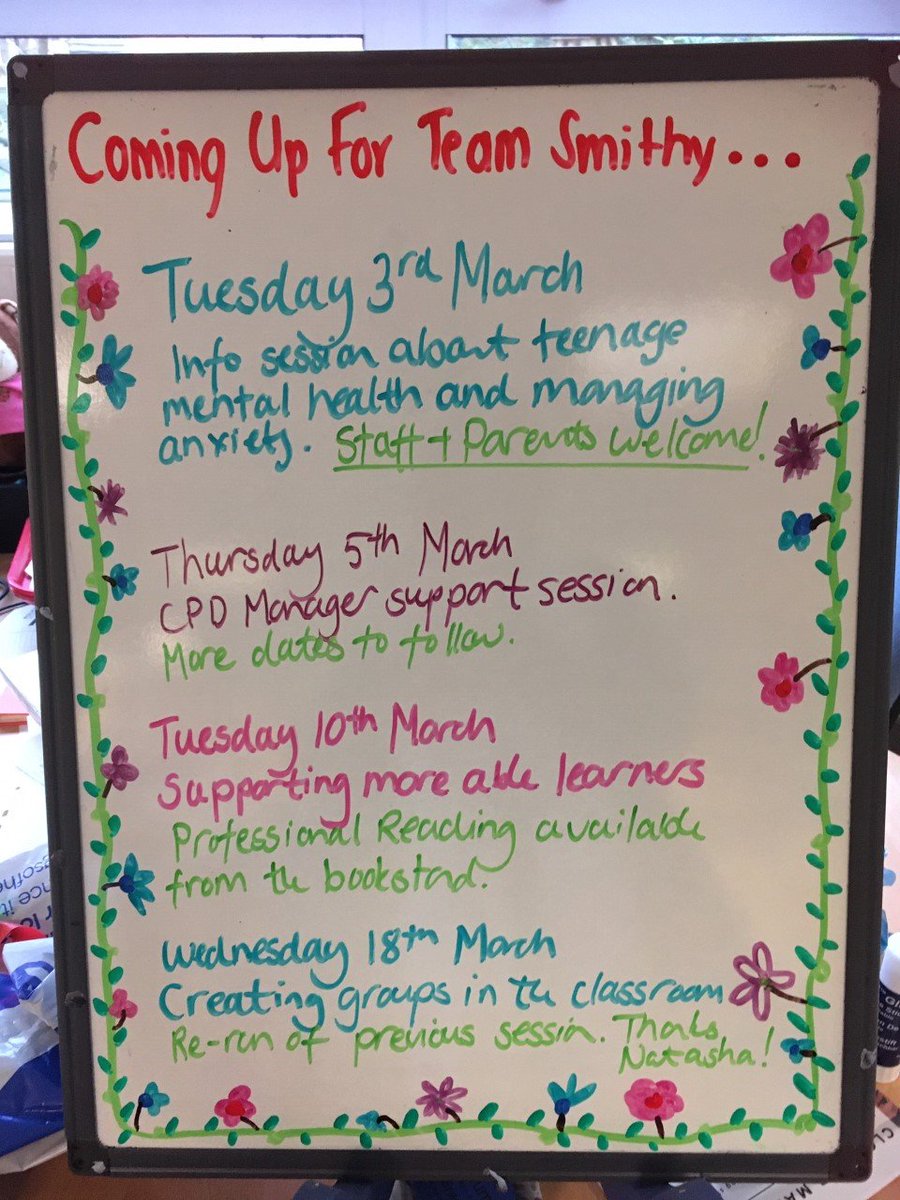 Coming Up For Team Smithy...
Tuesday 3rd March
Info session about teenage
mental health and managing
anxiety. Staff + Parents Welcome!
Thursday 5th March
CPD Manager support session.
More dates to follow.
Tuesday 10th March
Supporting more able learners
Professional Reading available
from the bookstad.
Wednesday 18th March
Creating groups in the classroom
Re-run of previous session. Thanks
Natasha!